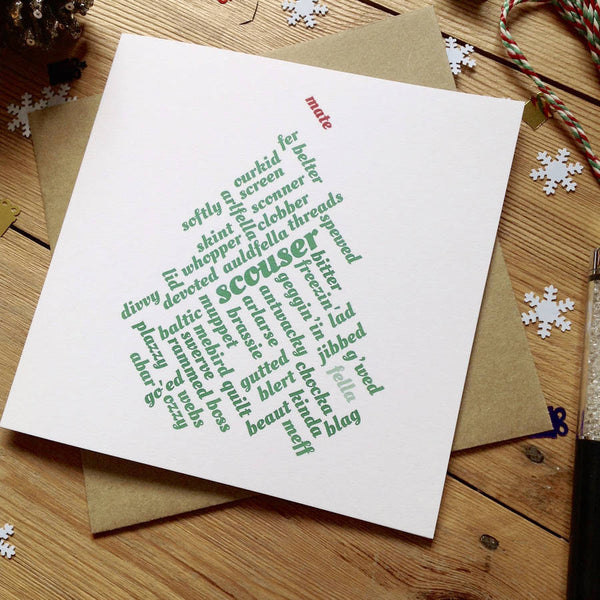 mate
fer
belter
ourkid
screen
sconner
softly
artfella
clobber
threads
skint
whopper
auldfella
spewed
lid
devoted
scouser
bitter
divvy
freezin'
geggin' in
lad
plazzy
baltic
muppet
arlarse
antwacky
jibbed
g'wed
abar
mebird
brassie
fella
swerve
gutted
chocka
go'ed
rammed
quilt
blert
kinda
blag
ozzy
webs
boss
beaut
meff